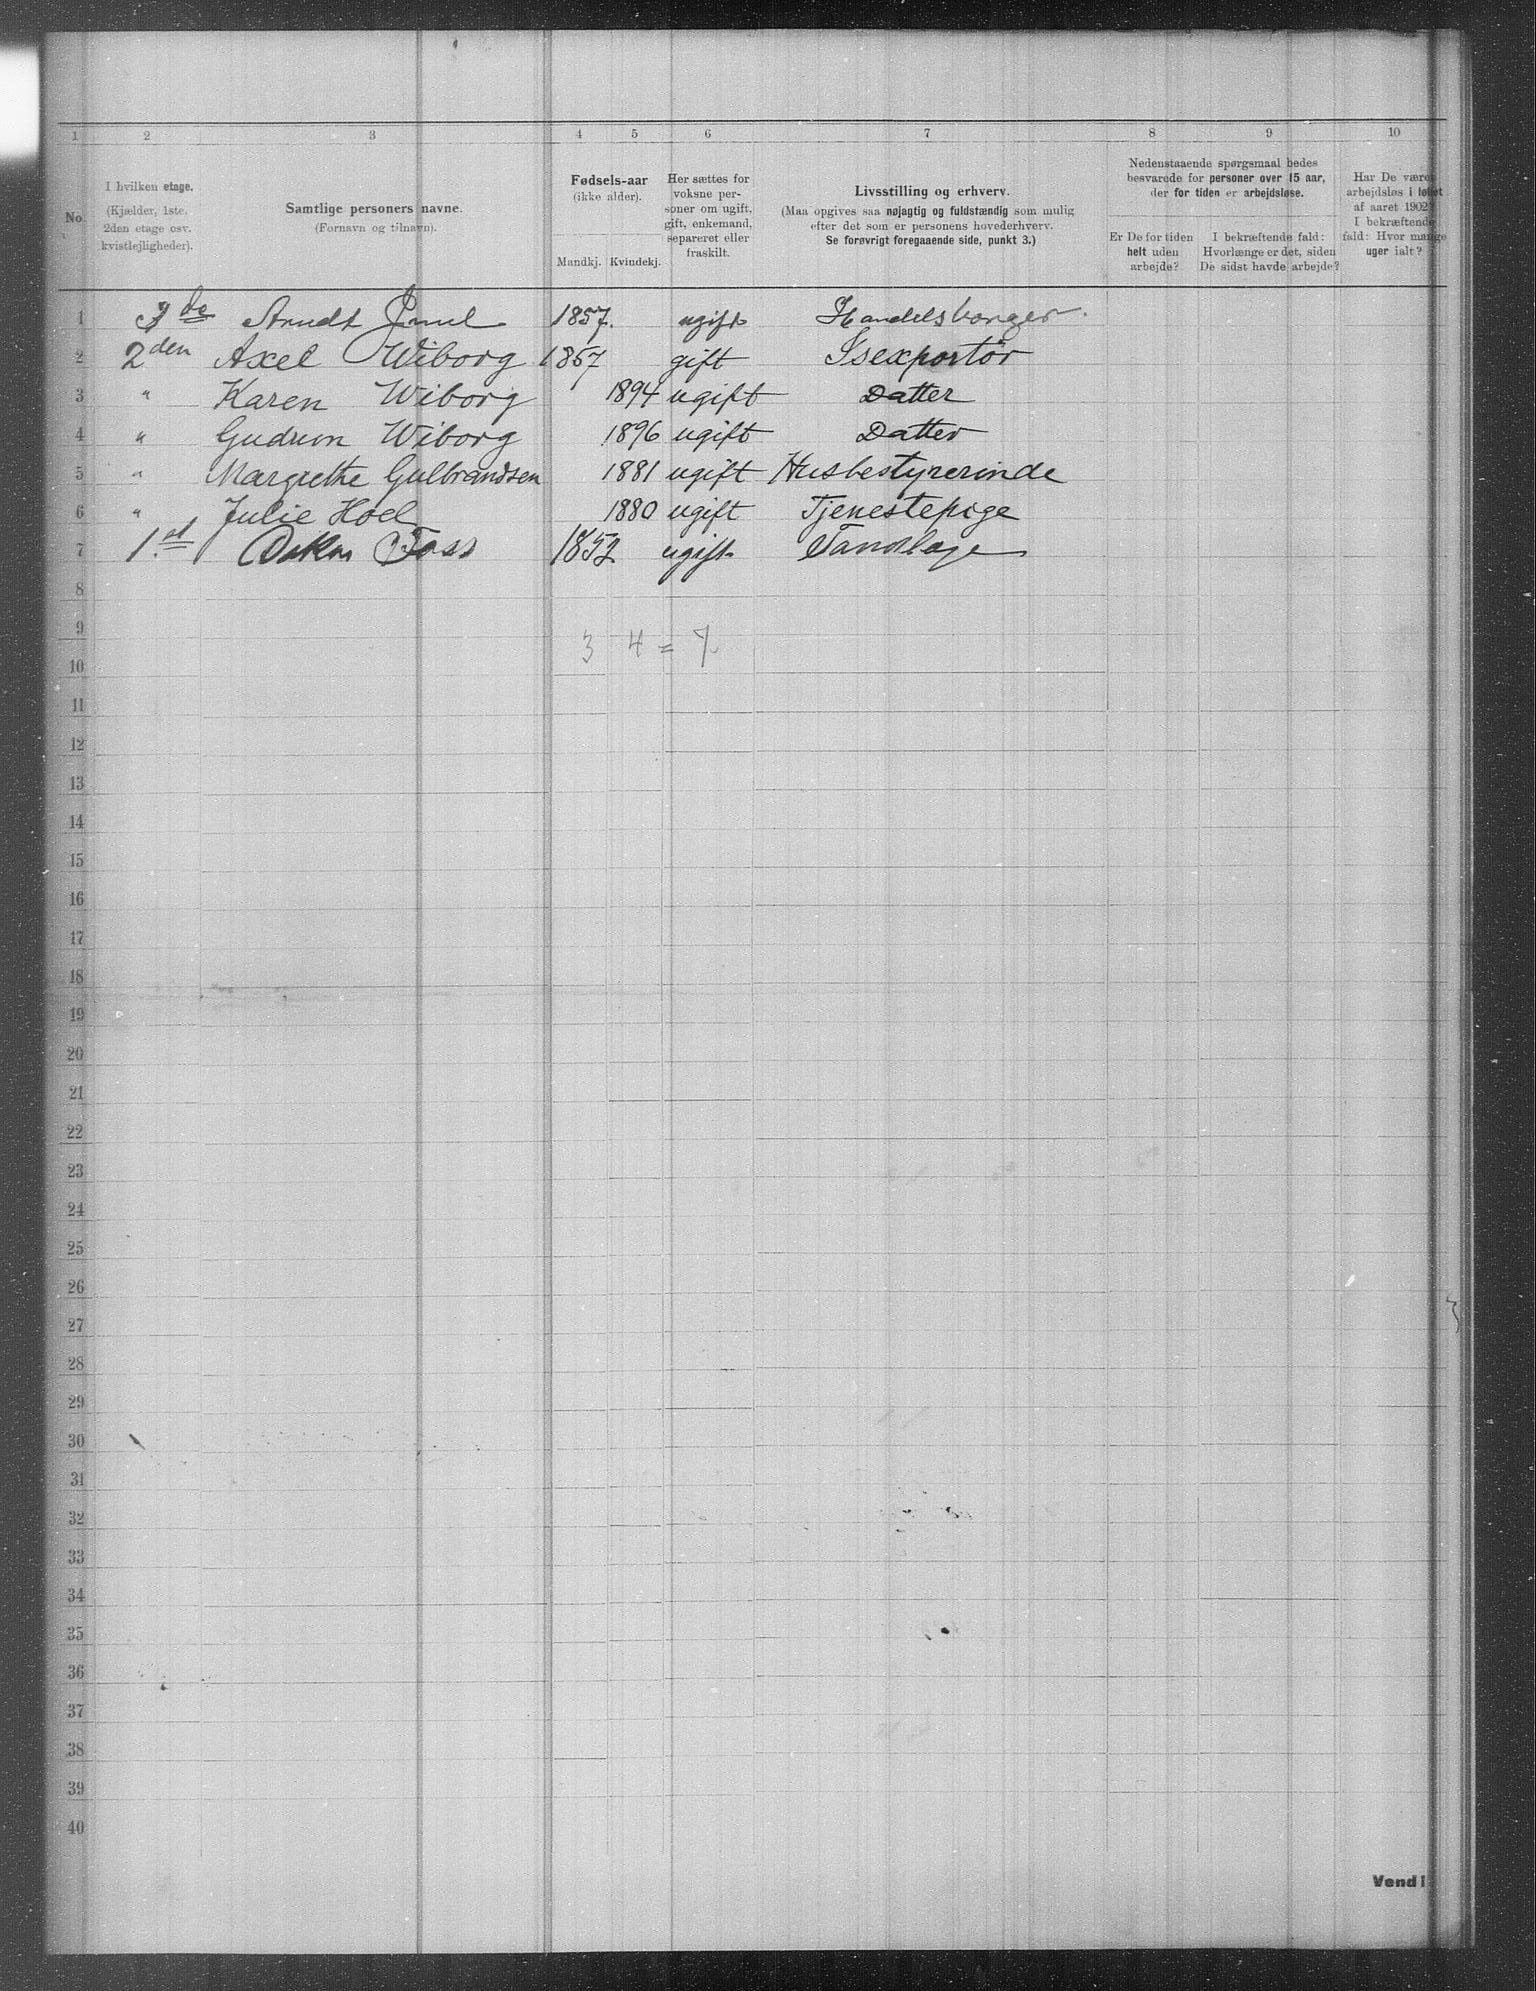 1 2 3 4 5 6 7 8 9 10
No.
I hvilken etage.
(Kjælder, 1ste.
2den etage osv.
kvistlejligheder).
Samtlige personers navne.
(Fornavn og tilnavn).
Fødsels-aar
(ikke alder).
Mandkj. Kvindekj.
Her sættes for
voksne per-
soner om ugift,
gift, enkemand,
separeret eller
fraskilt.
Livsstilling og erhverv.
(Maa opgives saa nøjagtig og fuldstændig som mulig
efter det som er personens hovederhverv.
Se forøvrigt foregaaende side, punkt 3.)
Nedenstaaende spørgsmaal bedes
besvarede for personer over 15 aar,
der for tiden er arbejdsløse.
Er De for tiden
helt uden
arbejde?
I bekræftende fald:
Hvorlænge er det, siden
De sidst havde arbejde?
Har De været
arbejdsløs i løbet
af aaret 1902?
I bekræftende
fald: Hvor mange
uger ialt?
1 3de Arndt 1857. ugift Handelsborger.
2 2den Axel Wiborg 1867 gift Isexportør
3 " Karen Wiborg 1894 ugift Datter
4 " Gudrun Wiborg 1896 ugift Datter
5 " Margrethe Gulbrandsen 1881 ugift Husbestyrerinde
6 " Julie Hoel 1880 ugift Tjenestepige
7 1.st Foss 1852 ugift Tandlæge
8
9
3 4 = 7
10
11
12
13
14
15
16
17
18
19
20
21
22
23
24
25
26
27
28
29
30
31
32
33
34
35
36
37
38
39
40
Vend!